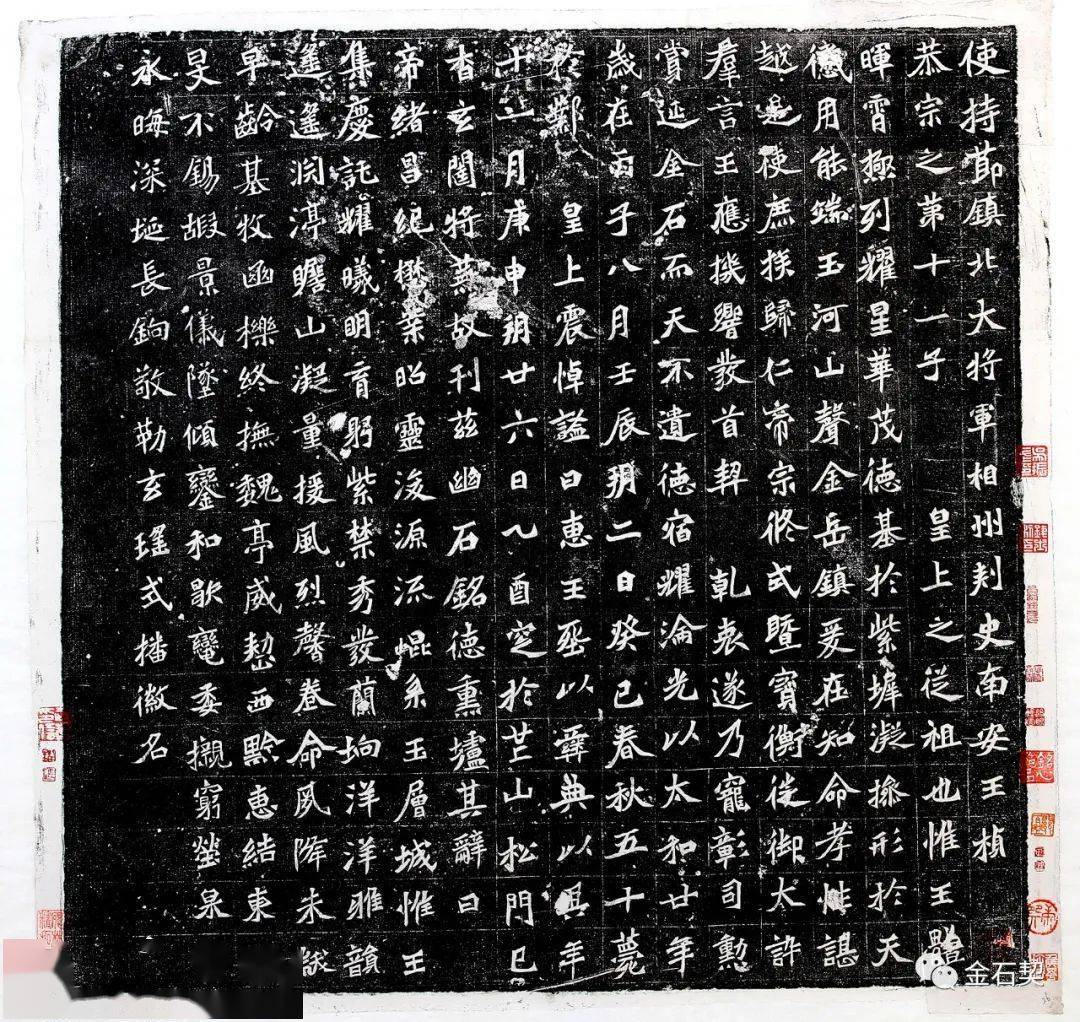 使持節鎮北大將軍相州刺史南安王楨
恭宗之第十一子　皇上之從祖也惟王體
暉霄極列耀星華茂德基於紫墀凝操形於天
儀用能端玉河山聲金岳鎮爰在知命孝性諶
越是使庶族歸仁帝宗攸式暨寶衡徙御大訴
羣言王應機響發首契　乾衷遂乃寵彰司勳
賞延金石而天不遺德宿耀淪光以太和廿年
歲在丙子八月壬辰朔二日癸巳春秋五十薨
於鄴　皇上震悼謚曰惠王葬以彝典以其年
十一月庚申朔廿六日乙酉窆於芒山松門已
杳玄闥將蕪故刊茲幽石銘德熏壚其辭曰
帝緒昌紀懋業昭靈浚源流崐系玉層城惟王
集慶託耀曦明育躬紫禁秀發蘭坰洋洋雅韻
遙遙淵渟瞻山凝量援風烈馨卷命夙降未
早齡基牧函櫟終撫魏亭威懃西黔惠結東
旻不錫嘏景儀墜傾鑾和歇轊委櫬窮塋泉
永晦深埏長鉤敬勒玄瑤式播徽名
金石契